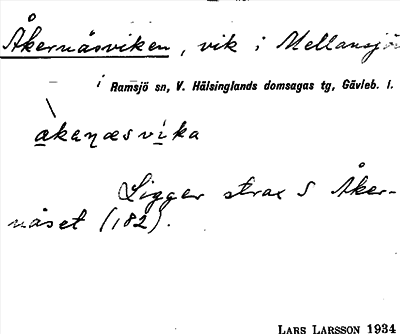 Åkernäsviken, vik i Mellansjön
i Ramsjö sn, V. Hälsinglands domsagas tg, Gävleb. l.
åkenæsvika
Ligger strax S Åker-
näset (182).
LARS LARSSON 1934